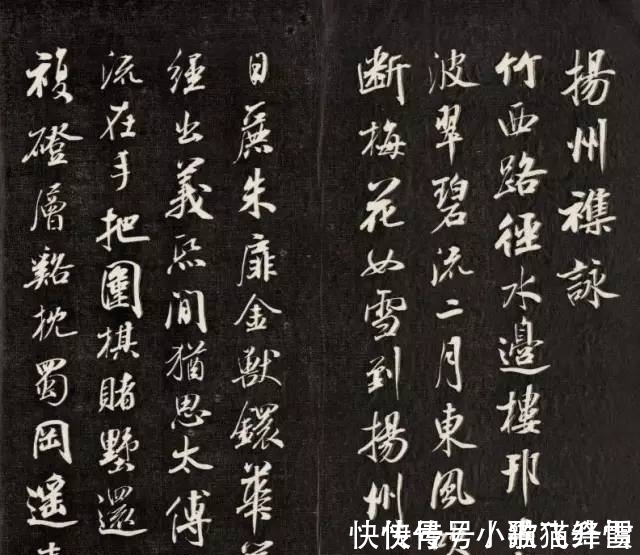 揚州襍詠
竹西路徑水邊樓邗
波翠碧流二月東風
断梅花如雪到揚州
日朱扉金獸鐶華
經出義熙間猶思太傅
流在手把圍棋賭墅還
複磴層谿枕蜀岡遥